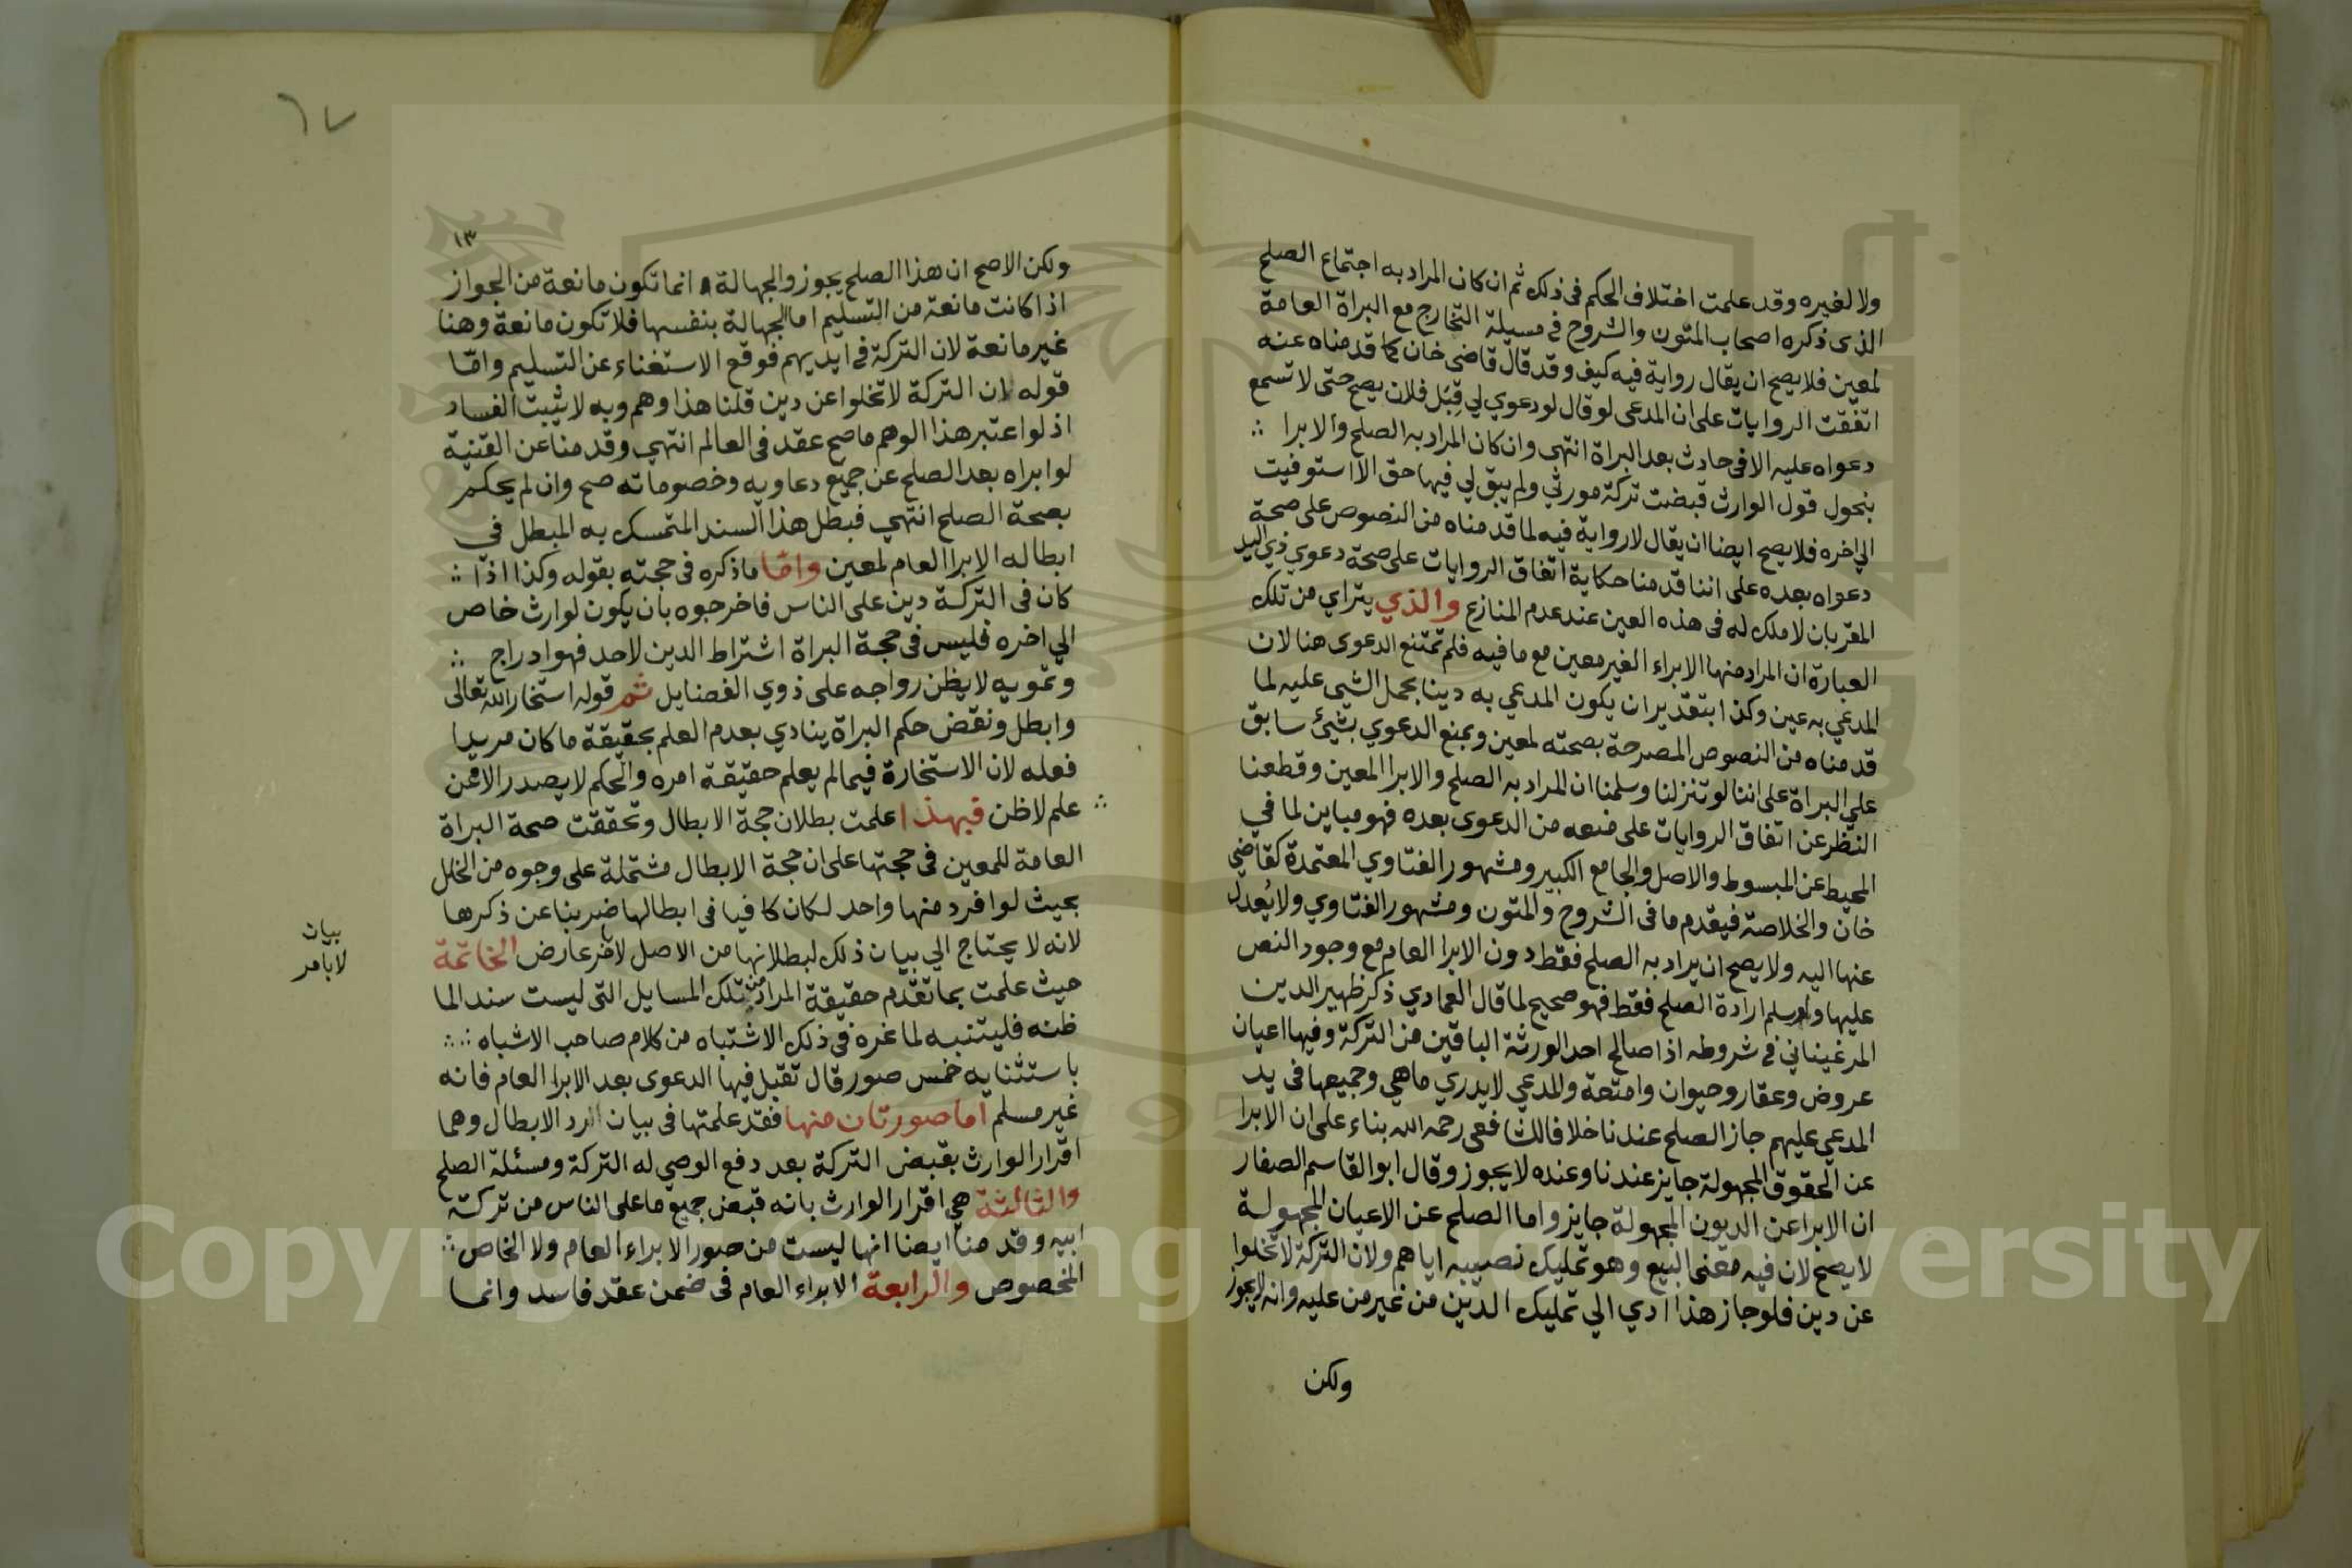 ولا لغيره وقد علمت اختلاف الحكم فى ذلك ثم ان كان المراد به اجتماع الصلح
الذى ذكره اصحاب المتون والشروح فى مسيلة التخارج مع البراة العامة
لمعين فلا يصح ان يقال رواية فيه كيف وقد قال قاضى خان كما قدمناه عنه
اتفقت الروايات على ان المدعى لو قال لو دعوي لي قِبَل فلان يصح حتى لا تسمع
دعواه عليه الا فى حادث بعد البراة انتهى وان كان المراد به الصلح والابرا ∴
بنحول قول الوارث قبضت تركة مورثي ولم يبق لي فيها حق الا استوفيت
الي اخره فلا يصح ايضا ان يقال لا رواية فيه لما قدمناه من النصوص على صحة
دعواه بعده على اننا قدمنا حكاية اتفاق الروايات على صحة دعوي ذي اليد
المقر بان لا ملك له فى هذه العين عند عدم المنازع والذي يتراي من تلك
العبارة ان المراد منها الابراء الغير معين مع ما فيه فلم تمتنع الدعوى هنا لان
المدعي به عين وكذا بتقدير ان يكون المدعي به دينا بحمل الشيى عليه لما
قدمناه من النصوص المصرحة بصحته لمعين وبمنع الدعوي بشيئ سابق
علي البراة على اننا لو تنزلنا وسلمنا ان المراد به الصلح والابرا المعين وقطعنا
النظر عن اتفاق الروايات على منعه من الدعوى بعده فهو مباين لما في
المحيط عن المبسوط والاصل والجامع الكبير ومشهور الفتاوي المعتمدة كقاضي
خان والخلاصة فيقدم ما فى الشروح والمتون ومشهور الفتاوي ولا يُعدل
عنها اليه ولا يصح ان يراد به الصلح فقط دون الابرا العام مع وجود النص
عليها ولو سلم ارادة الصلح فقط فهو صحيح لما قال العمادي ذكر ظهير الدين
المرغيناني فى شروطه اذا صالح احد الورثة الباقين من التركة وفيها اعيان
عروض وعقار وحيوان وامتعة والمدعي لا يدري ما هي وجميعها فى يد
المدعي عليهم جاز الصلح عندنا خلافا للشافعى رحمه الله بناء على ان الابرا
عن الحقوق المجهولة جايز عندنا وعنده لا يجوز وقال ابو القاسم الصفار
ان الابرا عن الديون المجهولة جايز واما الصلح عن الاعيان المجهولة
لا يصح لان فيه معنى البيع وهو تمليك نصيبه اياهم ولان التركة لا تخلوا
عن دين فلو جاز هذا ادي الي تمليك الدين من غير من عليه وانه لا يجوز
ولكن
٦٧
١٣
ولكن الاصح ان هذا الصلح يجوز والجهالة انما تكون مانعة من الجواز
اذا كانت مانعة من التسليم اما الجهالة بنفسها فلا تكون مانعة وهنا
غير مانعة لان التركة فى ايديهم فوقع الاستغناء عن التسليم وامّا
قوله ان التركة لا تخلوا عن دين قلنا هذا وهم وبه لا يثبت الفساد
اذ لو اعتبر هذا الوهم ما صح عقد فى العالم انتهي وقدمنا عن القنية
لو ابراه بعد الصلح عن جميع دعاويه وخصوماته صح وان لم يحكم
بصحة الصلح انتهي فبطل هذا السند المتمسك به المبطل في
ابطاله الابرا العام لمعين وامّا ما ذكره فى حجته بقوله وكذا اذا ∴
كان فى التركة دين على الناس فاخرجوه بان يكون لوارث خاص
الي اخره فليس فى حجة البراة اشتراط الدين لاحد فهو ادراج ∴
وتمويه لا يظن رواجه على ذوي الفضايل ثم قوله استخار الله تعالى
وابطل ونقض حكم البراة ينادي بعدم العلم بحقيقة ما كان مريدا
فعله لان الاستخارة فيما لم يعلم حقيقة امره والحكم لا يصدر الا عن
علم لا ظن فبهذا علمت بطلان حجة الابطال وتحققت صحة البراة ∴
العامة للمعين فى حجتها على ان حجة الابطال مشتملة على وجوه من الخلل
بحيث لو افرد منها واحد لكان كافيا فى ابطالها ضربنا عن ذكرها
لانه لا يحتاج الي بيان ذلك لبطلانها من الاصل لامر عارض الخاتمة
بيان
لابامر
حيث علمت بما تقدم حقيقة المراد من تلك المسايل التى ليست سندا لما
ظنه فليتنبه لما غره فى ذلك الاشتباه من كلام صاحب الاشباه ∴
باستثنايه خمس صور قال تقبل فيها الدعوى بعد الابرا العام فانه
غير مسلم اما صورتان منها فقد علمتها فى بيان الرد الابطال وهما
اقرار الوارث بقبض التركة بعد دفع الوصي له التركة ومسئلة الصلح
والثالثة هي اقرار الوارث بانه قبض جميع ما على الناس من تركة
ابيه وقدمنا ايضا انها ليست من صور الابراء العام ولا الخاص ∴
المخصوص والرابعة الابراء العام فى ضمن عقد فاسد وانما
Copyright © King Saud University